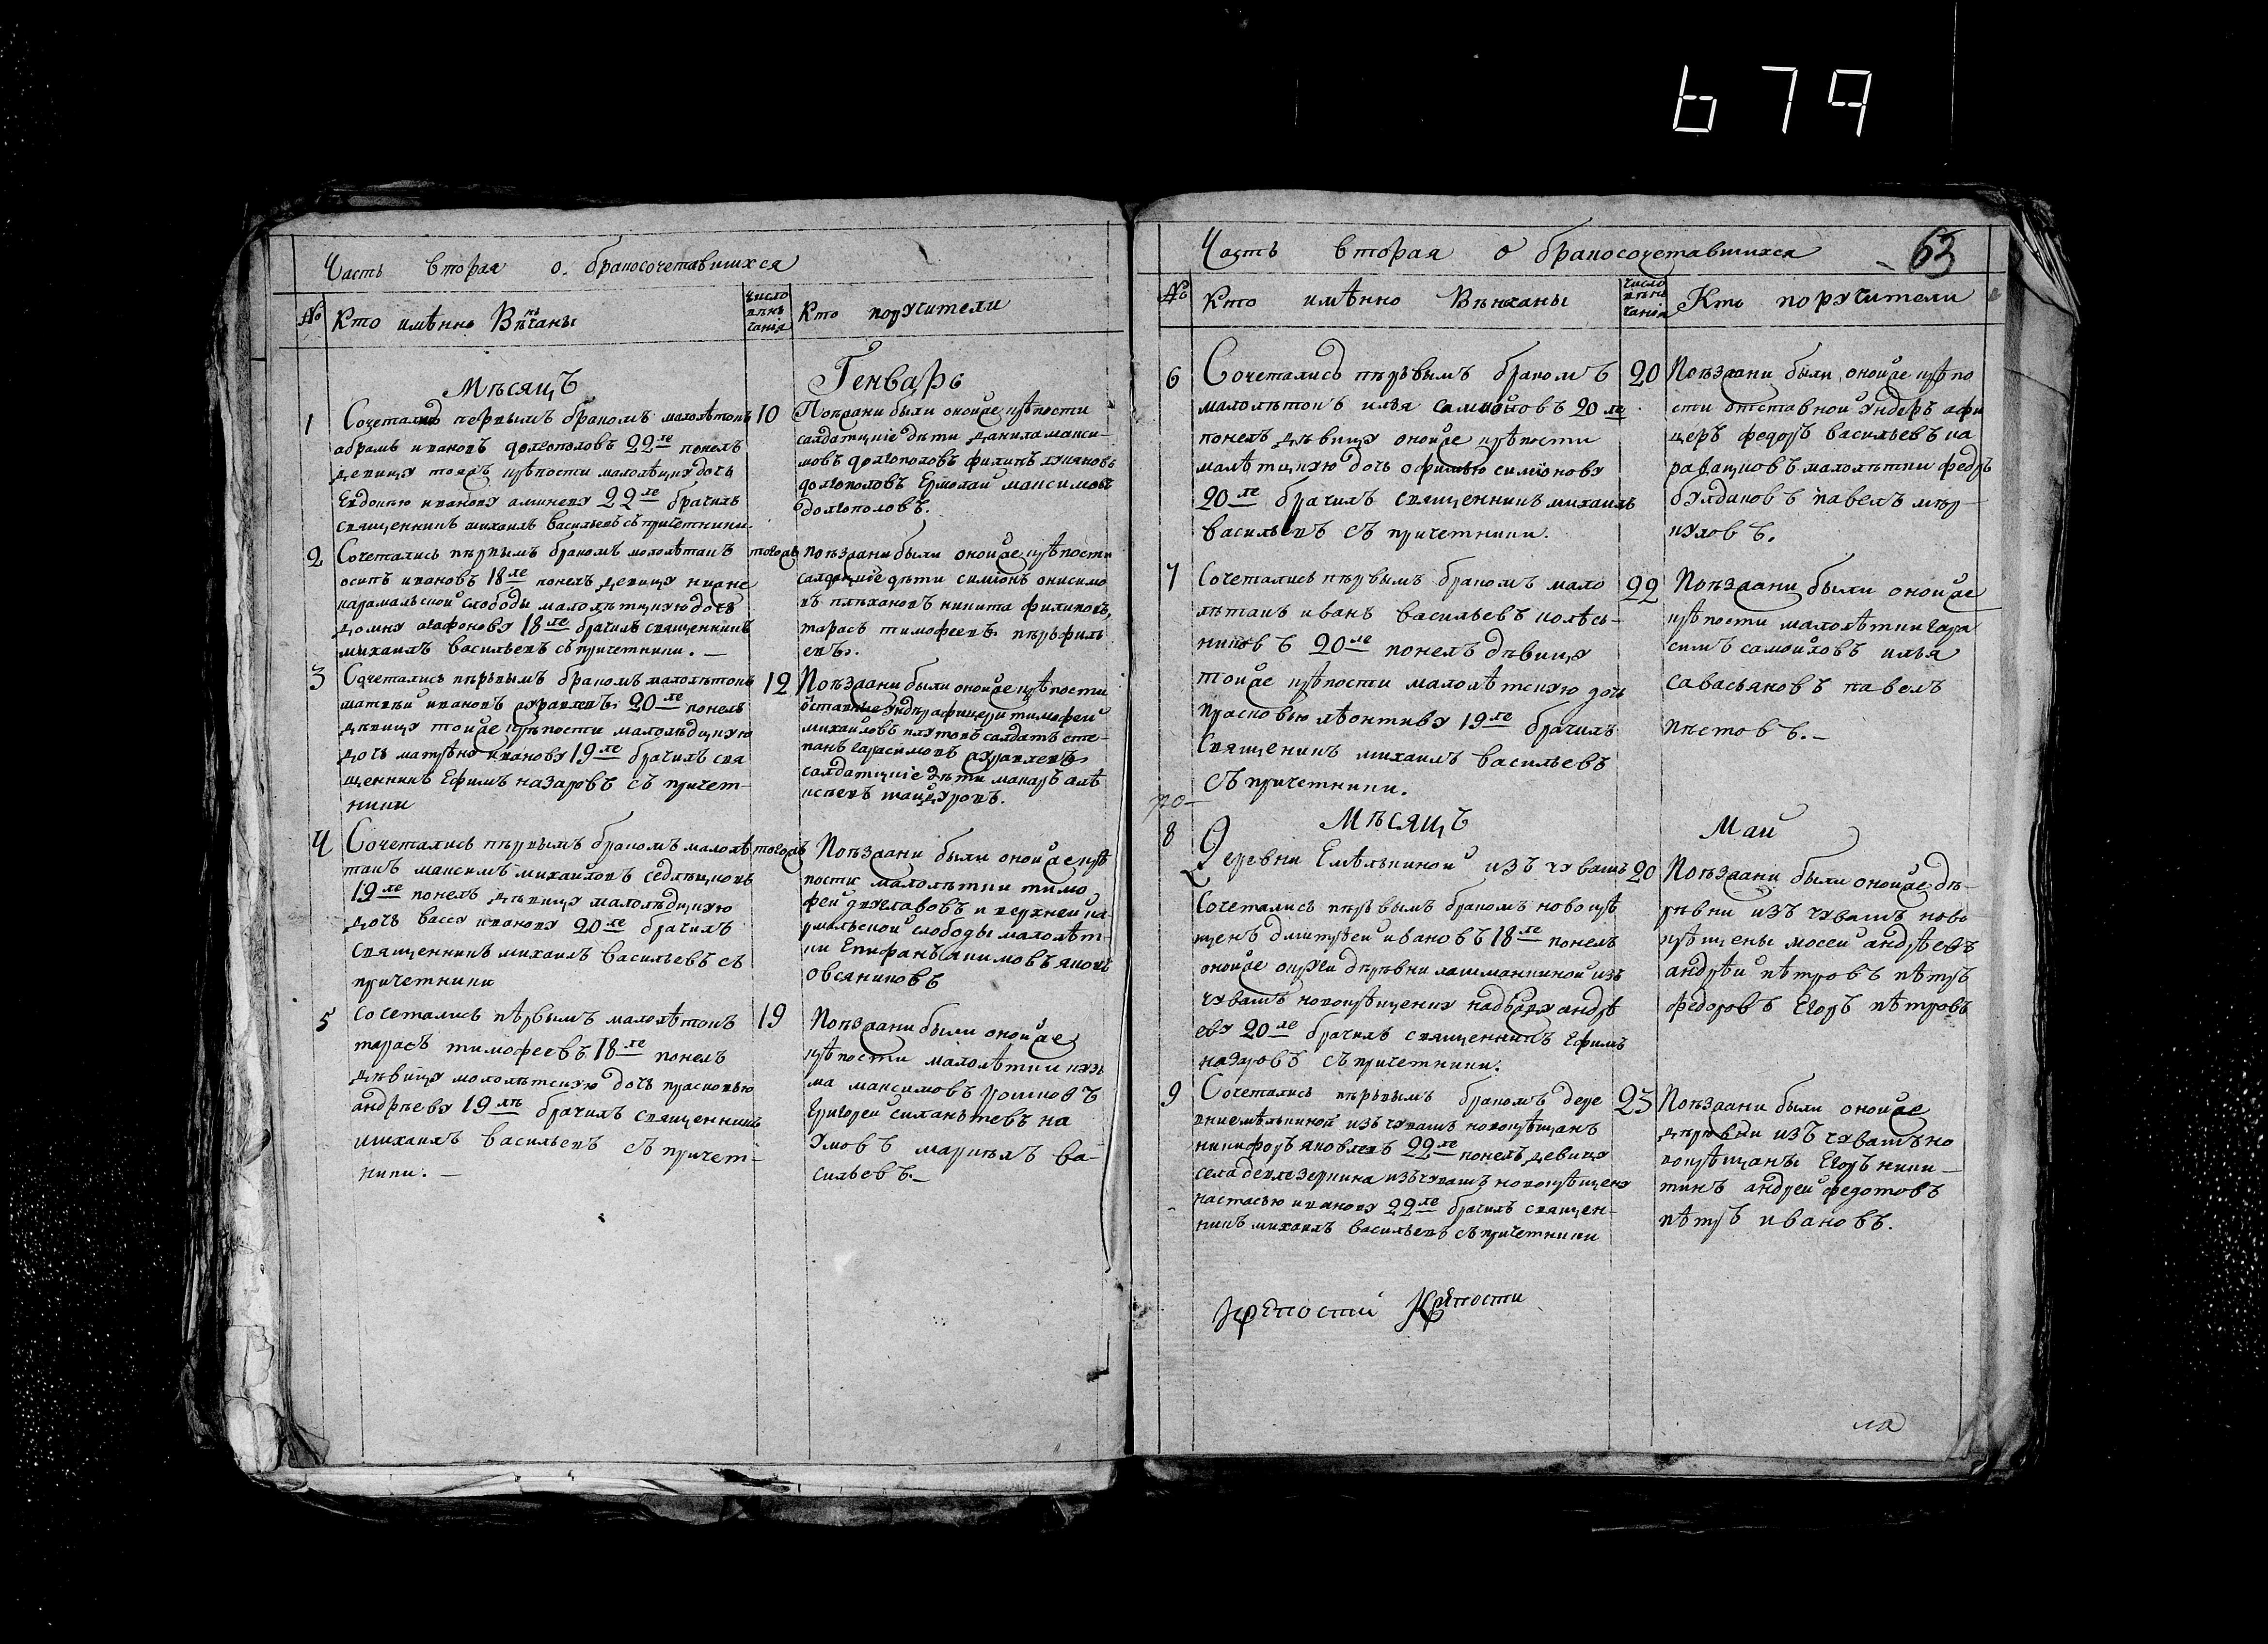 679
Часть вторая о. бракосочетавшихся
№
Кто имѣнно Вѣнчаны
число вѣнчанія
Кто поручители
Мѣсяцъ
Генварь
1
Сочетались первымъ бракомъ малолѣтокъ
абрамъ ивановъ долгополовъ 22 ле понелъ
девицу тояжъ крѣпости малолѣцку дочь
Евдокью иванову 22 ле брачилъ
священникъ михаилъ васильевъ съ причетники.
10
были оной же крѣпости
салдатцкіе дѣти данила макси-
мовъ долгополовъ филипъ лукяновъ
долгополовъ Ермолаи максимовъ
долгополовъ.
2
Сочетались пѣрвымъ бракомъ мололѣтакъ
осипъ ивановъ 18 ле понелъ девицу нижне
кармальской слободы малолѣтцкую дочь
домну агафонову 18 ле брачилъ священникъ
михаилъ васильевъ съ причетники.
тогожъ
поѣзжани были оной же крѣпости
салдацкіе дѣти симіонъ онисимо
въ плѣхановъ никита филиповъ,
тарасъ тимофеевъ пѣрфиль
евъ.
3
Сочетались пѣрвымъ бракомъ малолѣтокъ
матвѣй ивановъ журавлевъ 20 ле понелъ
дѣвицу тойже крѣпости малолѣдцкую
дочь матрѣну иванову 19 ле брачилъ свя
щенникъ Ефимъ назаровъ съ причет-
ники
12
Поѣзжани были оной же крѣпости
отставные ундѣрафицеры тимофей
михаиловъ плутовъ салдатъ сте-
панъ гарасимовъ журавлевъ
салдатцкіе дѣти макаръ алѣ
исѣевъ
4
Сочетались пѣрвымъ бракомъ малолѣ
такъ максимъ михаиловъ седѣльцковъ
19 ле понелъ дѣвицу малолѣдцкую
дочь вассу иванову 20 ле брачилъ
священникъ михаилъ васильевъ съ
причетники
тогожъ
Поѣзжани были оной же крѣ
пости малолѣтки тимо
фей двуглавовъ и верхней ка
рмальской слободы малолѣт-
ки Епифанъ якимовъ яковъ
овсяниковъ
5
Сочетались пѣрвымъ малолѣтокъ
тарасъ тимофеевъ 18 ле понелъ
дѣвицу молольтскую дочь прасковью
андрѣеву 19 лѣ брачилъ священникъ
михаилъ васильевъ съ причет-
ники.
19
Поѣзжани были оной же
крѣпости малолѣтки кузь
ма максимовъ
Григореи силантьевъ на
умовъ ва-
сильевъ.
63
Часть вторая о бракосочетавшихся
№
Кто имѣнно Вѣнчаны
число вѣнчаніи
Кто поручители
6
Сочетались пѣрвымъ бракомъ
малолѣтокъ илья самойловъ 20 ле
понелъ дѣвицу оной же крѣпости
малѣтцкую дочь офимью симіонову
20 ле брачилъ священникъ михаилъ
васильевъ съ причетники.
20
Поѣзжани были оной же крѣпо
сти отставной ундеръ афи
церъ федоръ васильевъ ка
равацковъ малолѣтки федоръ
булдаковъ павелъ мѣр-
куловъ.
7
Сочетались пѣрвымъ бракомъ мало
лѣтакъ иванъ васильевъ колѣсь-
никовъ 20 ле понелъ дѣвицу
тойже крѣпости малолѣтскую дочь
прасковью лѣонтиву 19 ле брачилъ
священикъ михаилъ васильевъ
съ причетники.
22
Поѣзжани были оной же
крѣпости малолѣтки гара
симъ самоиловъ илья
савасьяновъ павелъ
пѣстовъ.
Мѣсяцъ
Май
8
Деревни Емѣлькиной изъ чувашъ
Сочетались пѣрвымъ бракомъ новокрѣ
щенъ дмитрей ивановъ 18 ле понелъ
оной же округи дѣрѣвни лашманкиной изъ
чувашъ новокрѣщену надѣжу андрѣ
еву 20 ле брачилъ священникъ Ефимъ
назаровъ съ причетники.
20
Поѣзжани были оной же дѣ-
рѣвни изъ чувашъ ново
крѣщены мосеи андрѣевъ
андрѣи пѣтровъ пѣтръ
федоровъ Егоръ пѣтровъ
9
Сочетались пѣрвымъ бракомъ дере
вни емѣлькиной изъ чувашъ новокрѣщанъ
никифоръ яковлевъ 22 ле понелъ девицу
села девлезеркина изъ чувашъ новокрѣщену
настасью иванову 22 ле брачилъ священ-
никъ михаилъ васильевъ съ причетники
23
Поѣзжани были оной же
дѣрѣвни изъ чувашъ но
вокрѣщаны Егоръ ники-
тинъ андреи федотовъ
пѣтръ ивановъ.
крепости Крѣпости